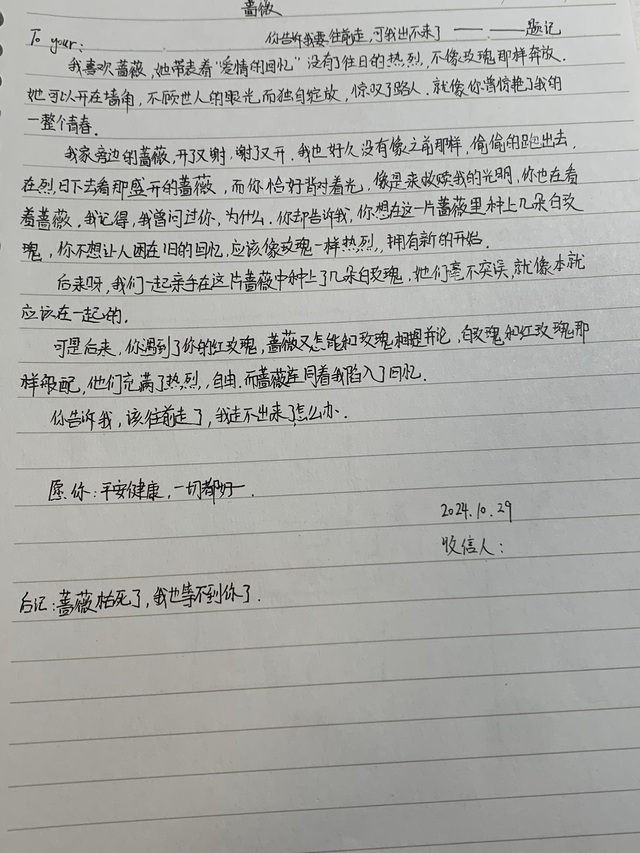 蔷薇
你告诉我要往前走，可我出不来了 —— ——题记
To your：
我喜欢蔷薇，她带表着“爱情的回忆”没有了往日的热烈，不像玫瑰那样奔放.
她可以开在墙角，不顾世人的眼光而独自绽放，惊叹了路人. 就像你曾惊艳了我的
一整个青春.
我家旁边的蔷薇，开了又谢，谢了又开. 我也好久没有像之前那样，偷偷的跑出去，
在烈日下去看那盛开的蔷薇，而你恰好背对着光，像是来做我的光明，你也在看
着蔷薇. 我记得，我曾问过你，为什么. 你却告诉我，你想在这一片蔷薇里种上几朵白玫
瑰，你不想让人困在旧的回忆，应该像玫瑰一样热烈，拥有新的开始.
后来呀，我们一起亲手在这片蔷薇中种上了几朵白玫瑰，她们毫不突误，就像本就
应该在一起的.
可是后来，你遇到了你的红玫瑰，蔷薇又怎能和玫瑰相提并论，白玫瑰和红玫瑰那
样般配，他们充满了热烈，自由. 而蔷薇连同着我陷入了回忆.
你告诉我，该往前走了，我走不出来了怎么办.
愿你：平安健康，一切都好.
2024.10.29
收信人：
后记：蔷薇枯死了，我也等不到你了.